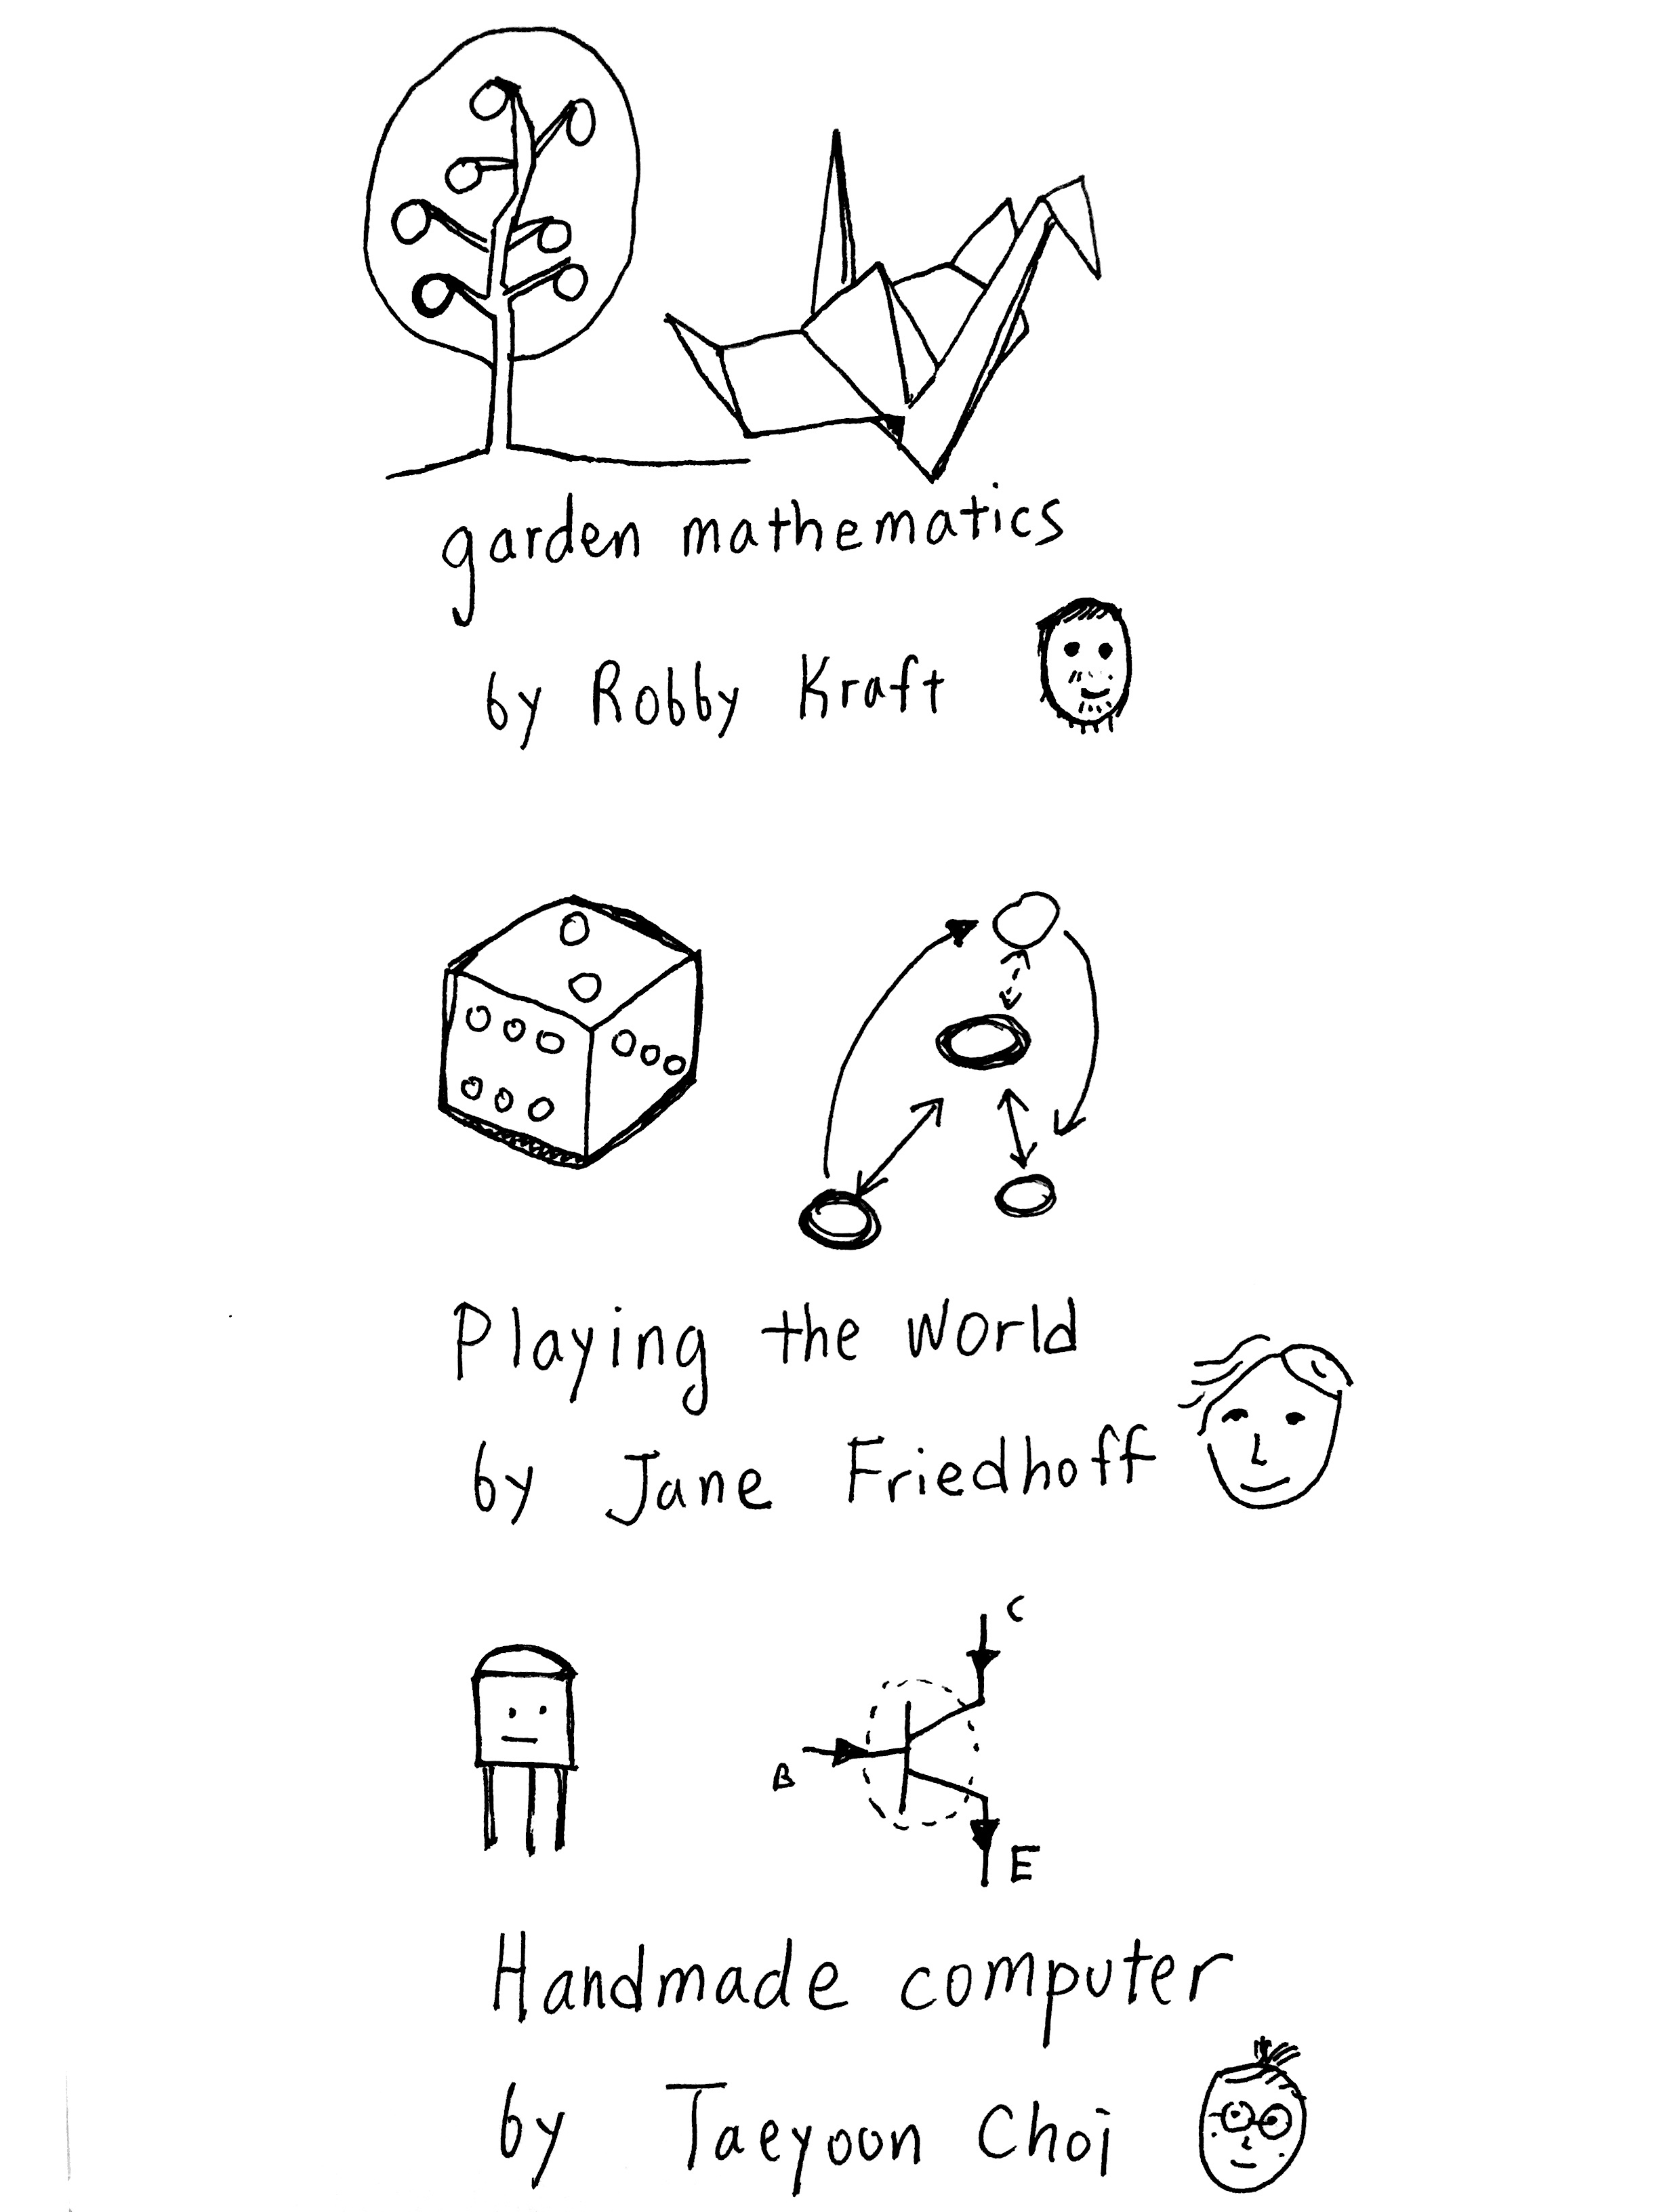 garden mathematics
by Robby Kraft
Playing the World
by Jane Friedhoff
C
B
E
Handmade computer
by Taeyoon Choi